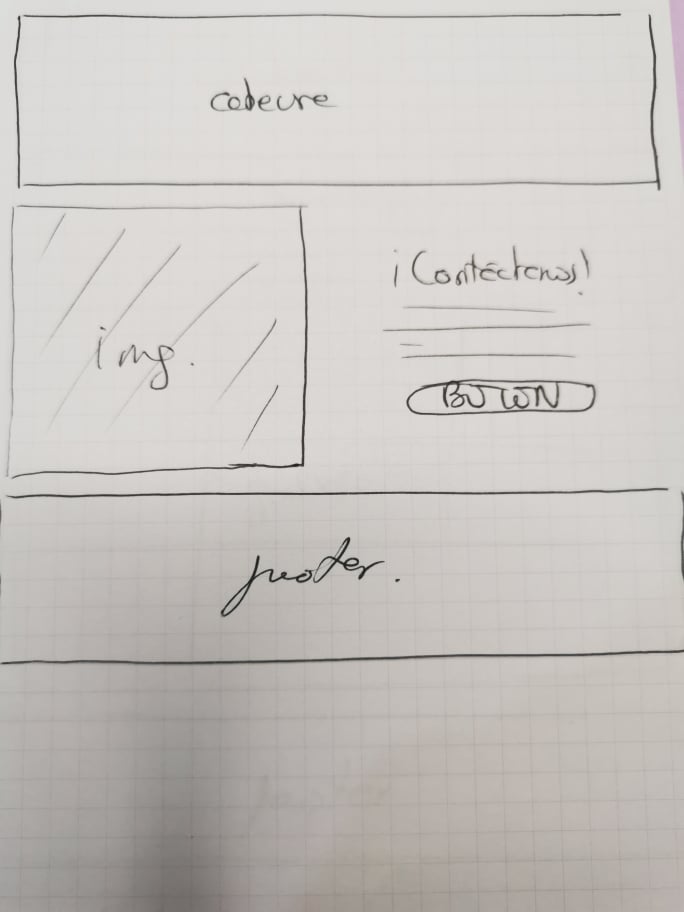 cabecera
img.
¡Contáctenos!
BUTTON
footer.